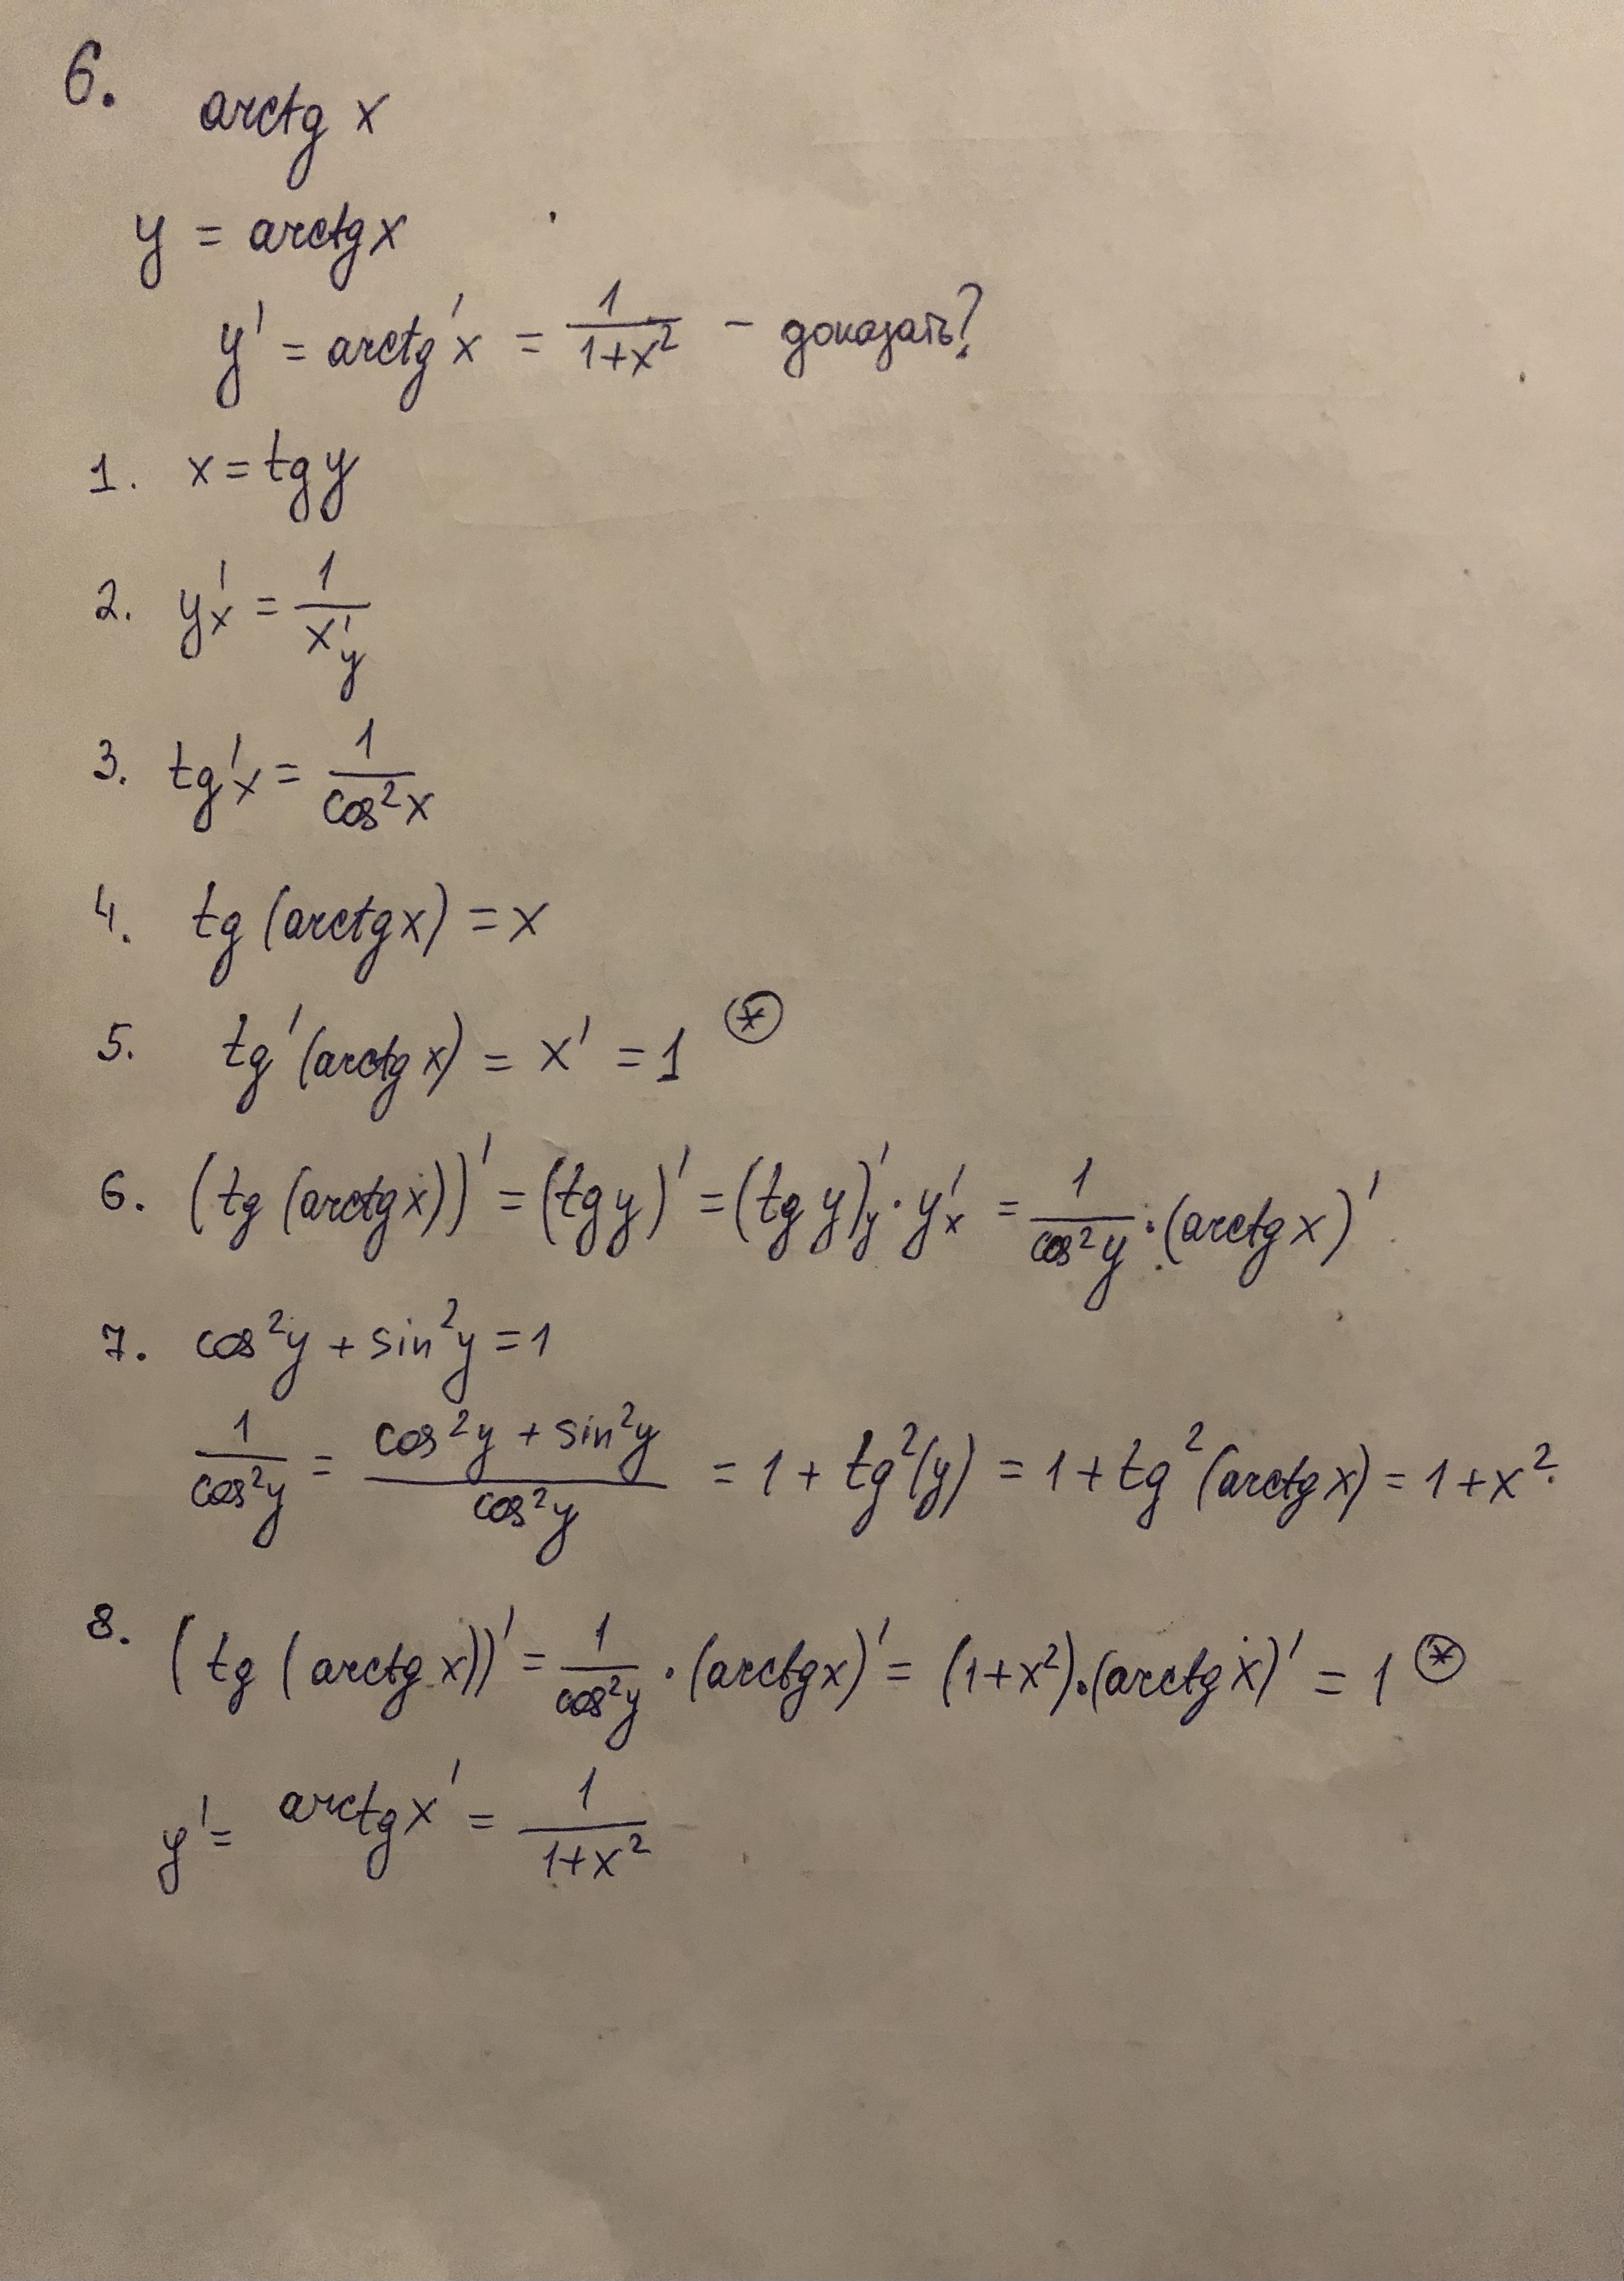 6. arctg x
y = arctg x
y' = arctg'x = 1/(1+x²) - доказать?
1. x = tg y
2. y'ₓ = 1/x'_y
3. tg'x = 1/cos²x
4. tg (arctg x) = x
5. tg'(arctg x) = x' = 1 ⊛
6. (tg (arctg x))' = (tg y)' = (tg y)'_y · y'ₓ = 1/cos²y · (arctg x)'
7. cos²y + sin²y = 1
1/cos²y = (cos²y + sin²y)/cos²y = 1 + tg²(y) = 1 + tg²(arctg x) = 1 + x².
8. (tg (arctg x))' = 1/cos²y · (arctg x)' = (1+x²)·(arctg x)' = 1 ⊛
y' = arctg x' = 1/(1+x²)